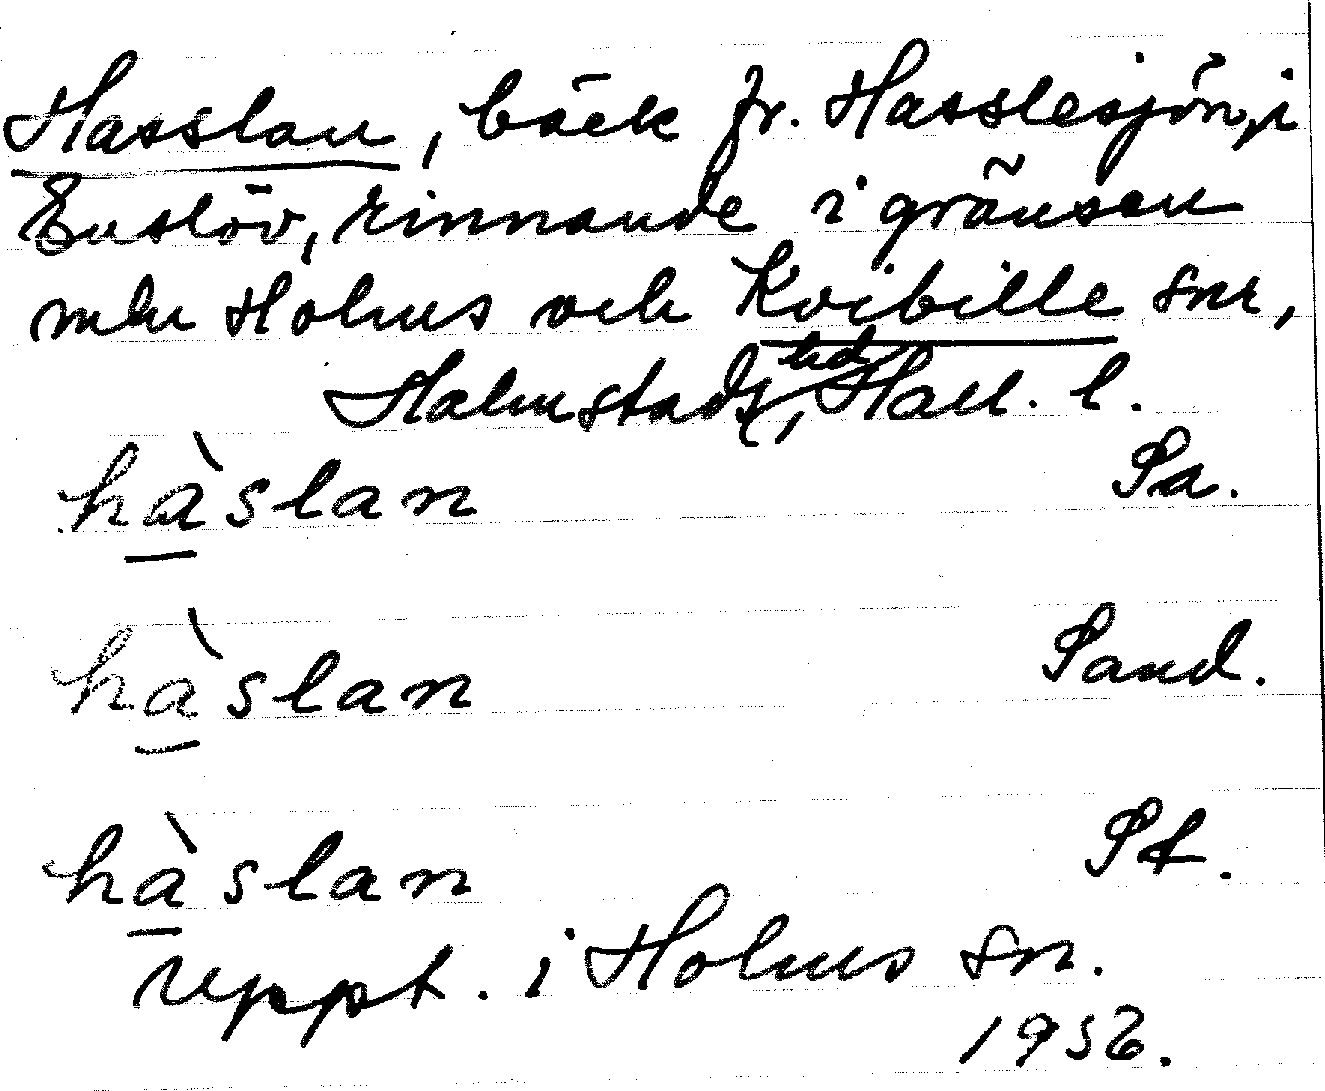 Hasslan, bäck fr. Hasslesjön, i
Enslöv, rinnande i gränsen
mln Holms och Kvibille snr,
Halmstads hd, Hall. l.
hàslan Sa.
hàslan Sand.
hàslan St.
uppt. i Holms sn.
1956.